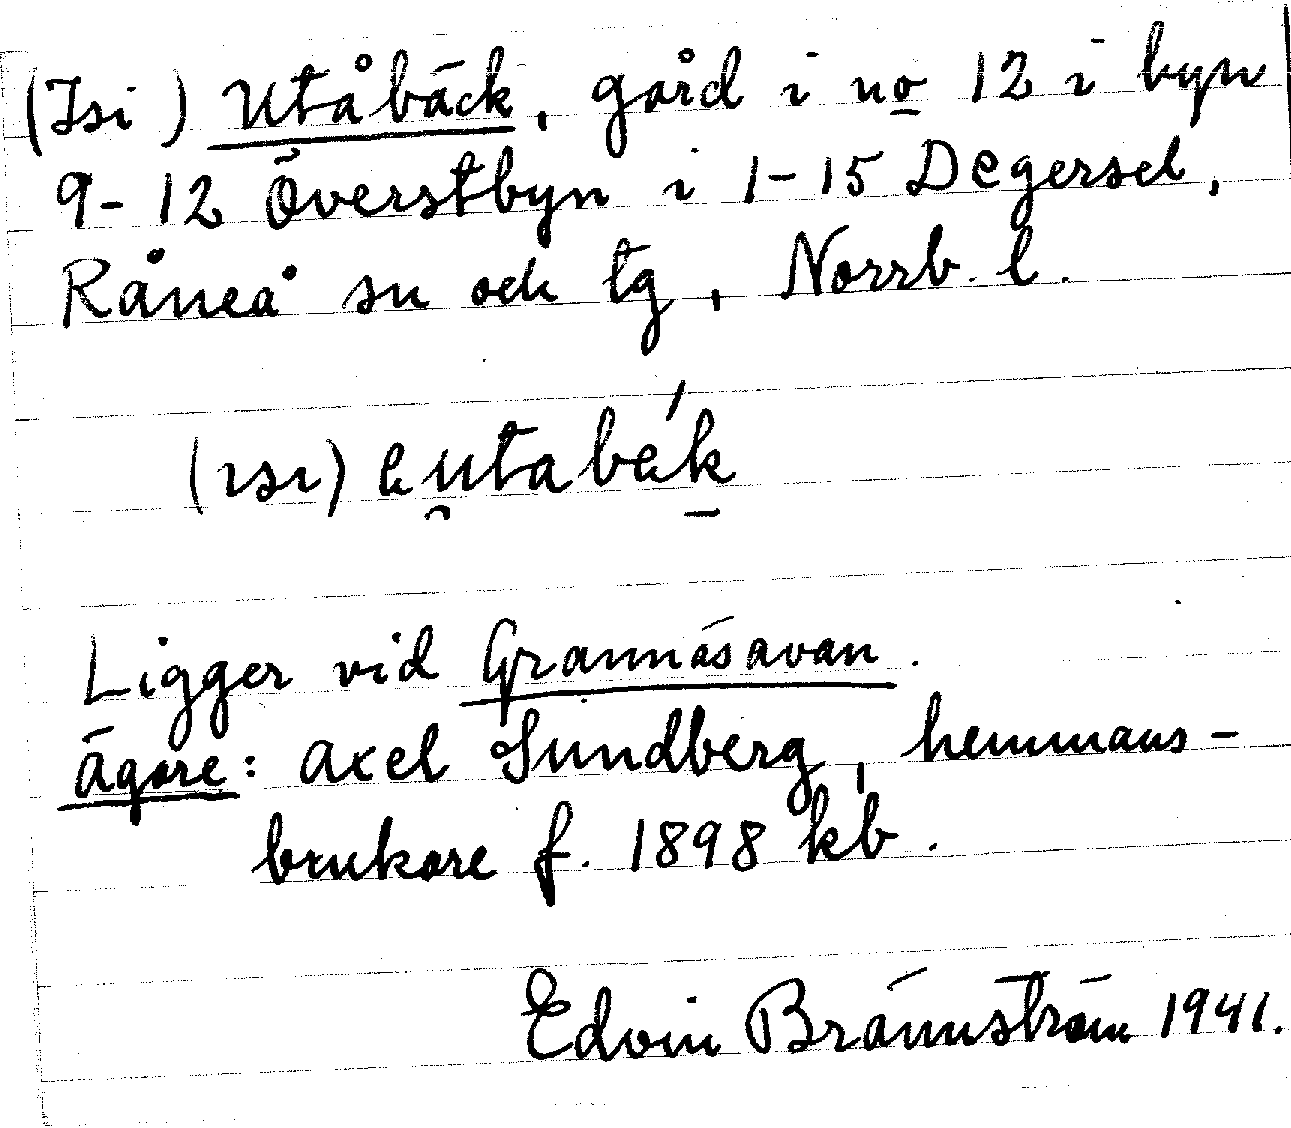 (Isi) Utåbäck, gård i no 12 i byn
9-12 Överstbyn i 1-15 Degersel,
Råneå sn och tg, Norrb. l.
(ısı)
Ligger vid Grannäsavan.
Ägare: Axel Sundberg, hemmans-
brukare f. 1898 kb.
Edvin Brännström 1941.